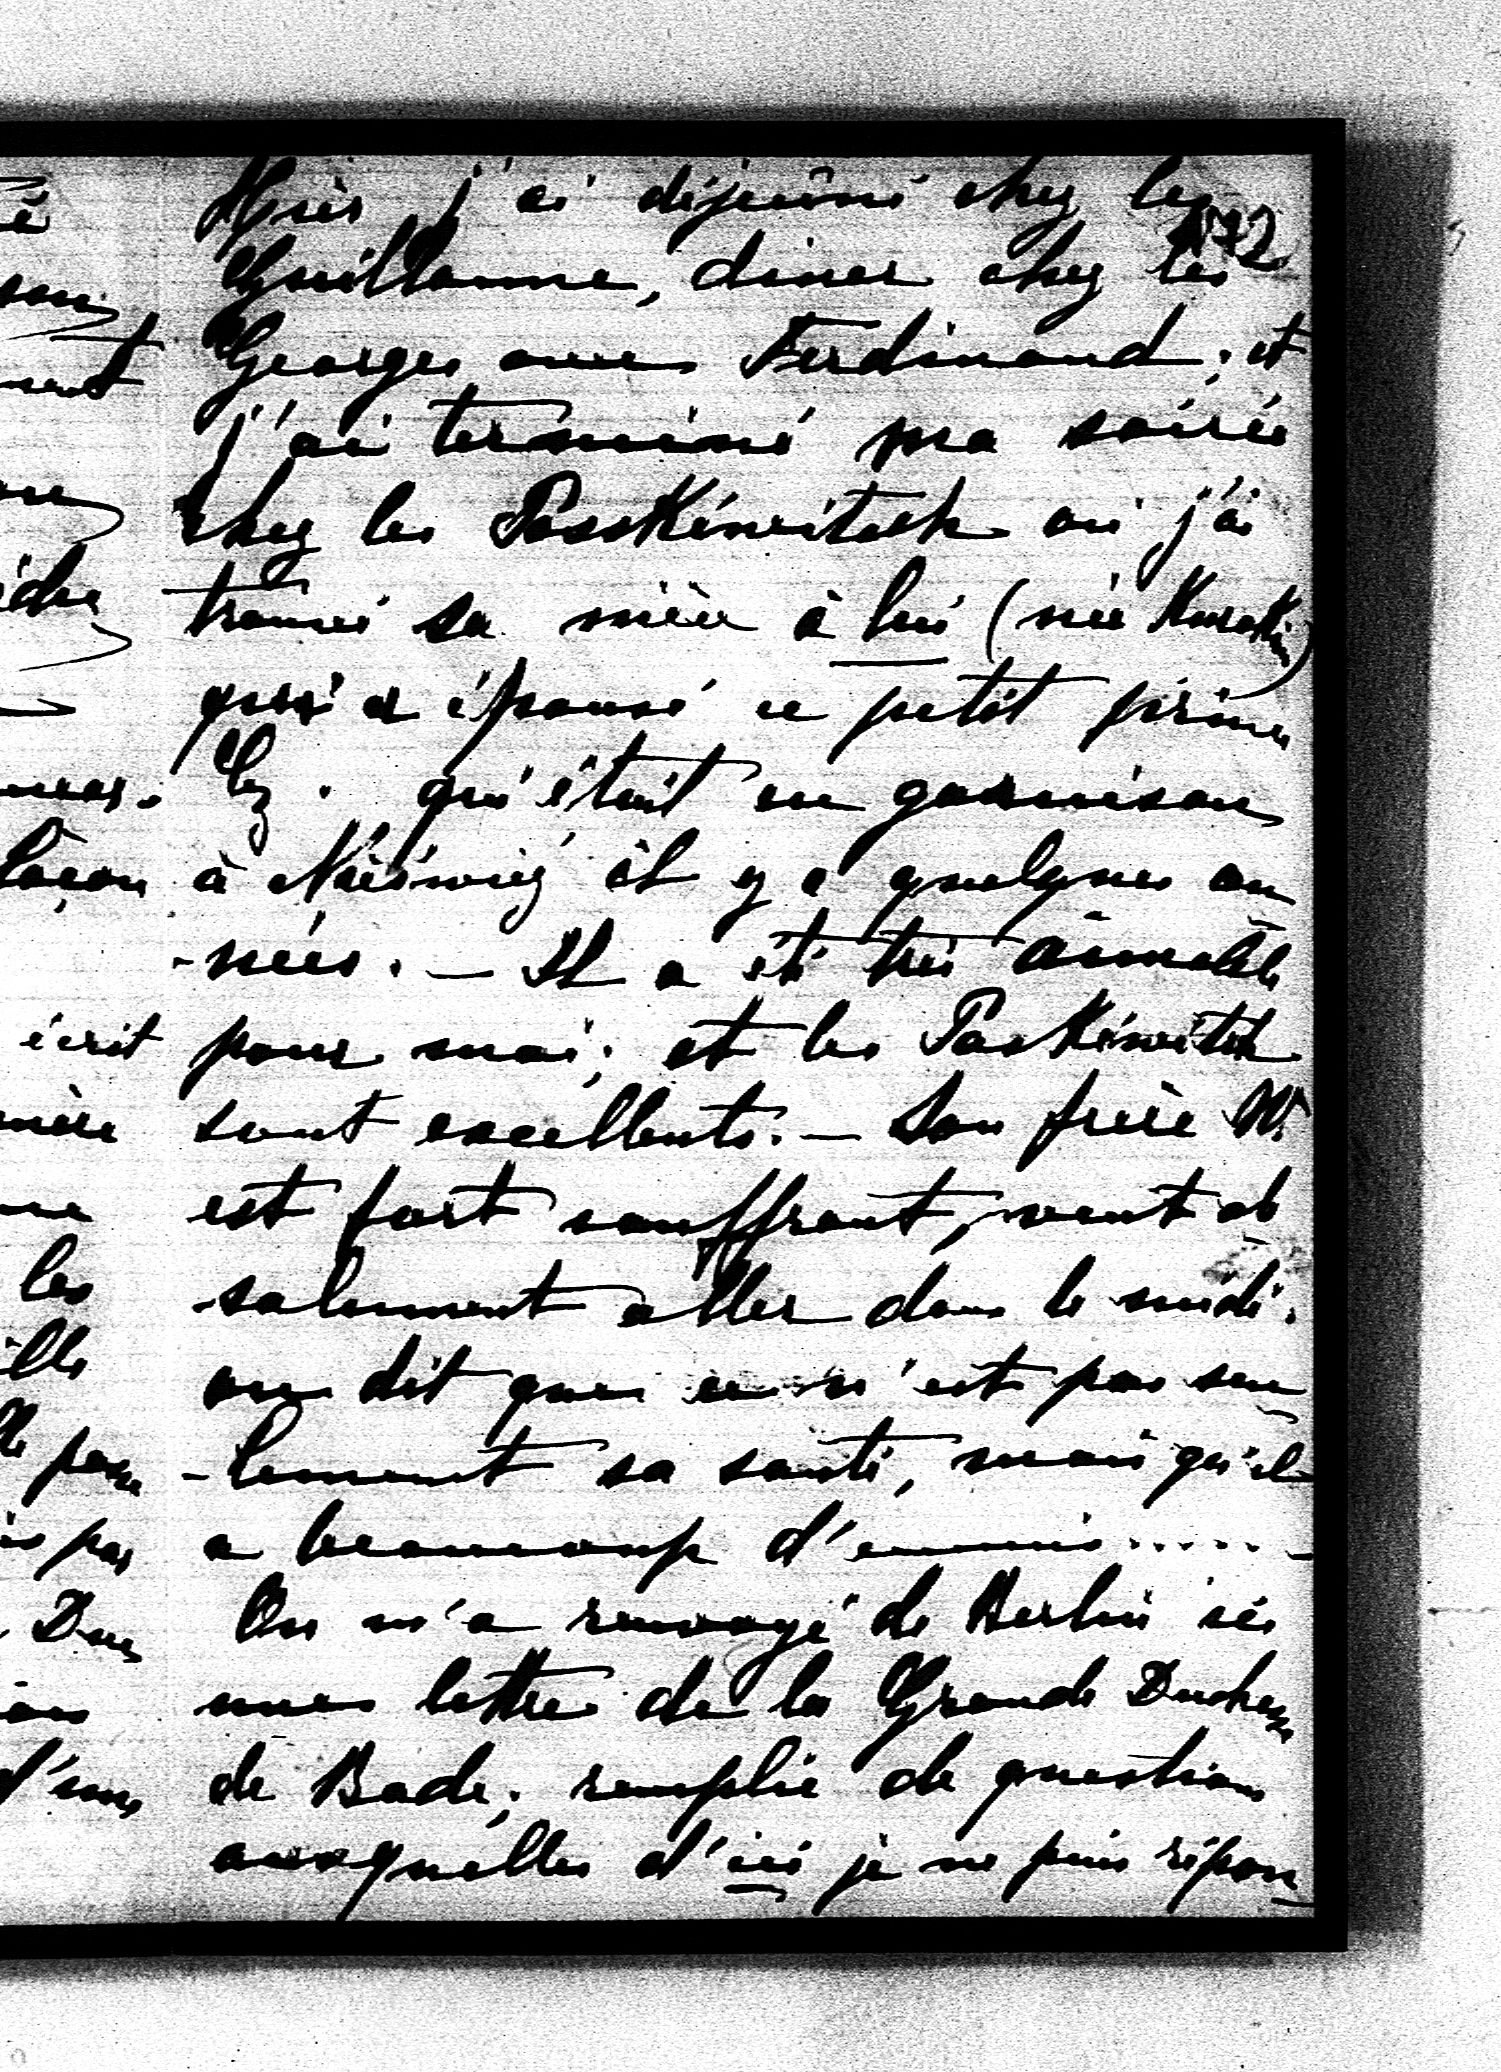 Hier j'ai déjeûné chez les
172
Guillaume, diner chez les
Georges avec Ferdinand; et
j'ai terminé ma soirée
chez les Passkéwitsch où j'ai
trouvé sa nièce à lui (née Kurakin)
qui a épousé ce petit prince
qui était en garnison
à Nieświeź il y a quelques an
-nées. — Il a été très aimable
pour moi; et les Paskéwitch
sont excellents. — Son frère W.
est fort souffrant, veut ab
-solument aller dans le midi.
on dit que ce n'est pas seu
-lement sa santé, mais qu'il
a beaucoup d'ennuis.....
On m'a renvoyé de Berlin ici
une lettre de la Grande Duchesse
de Bade; remplie de questions
auxquelles d'ici je ne puis répon
écrit
les
pas
Duc